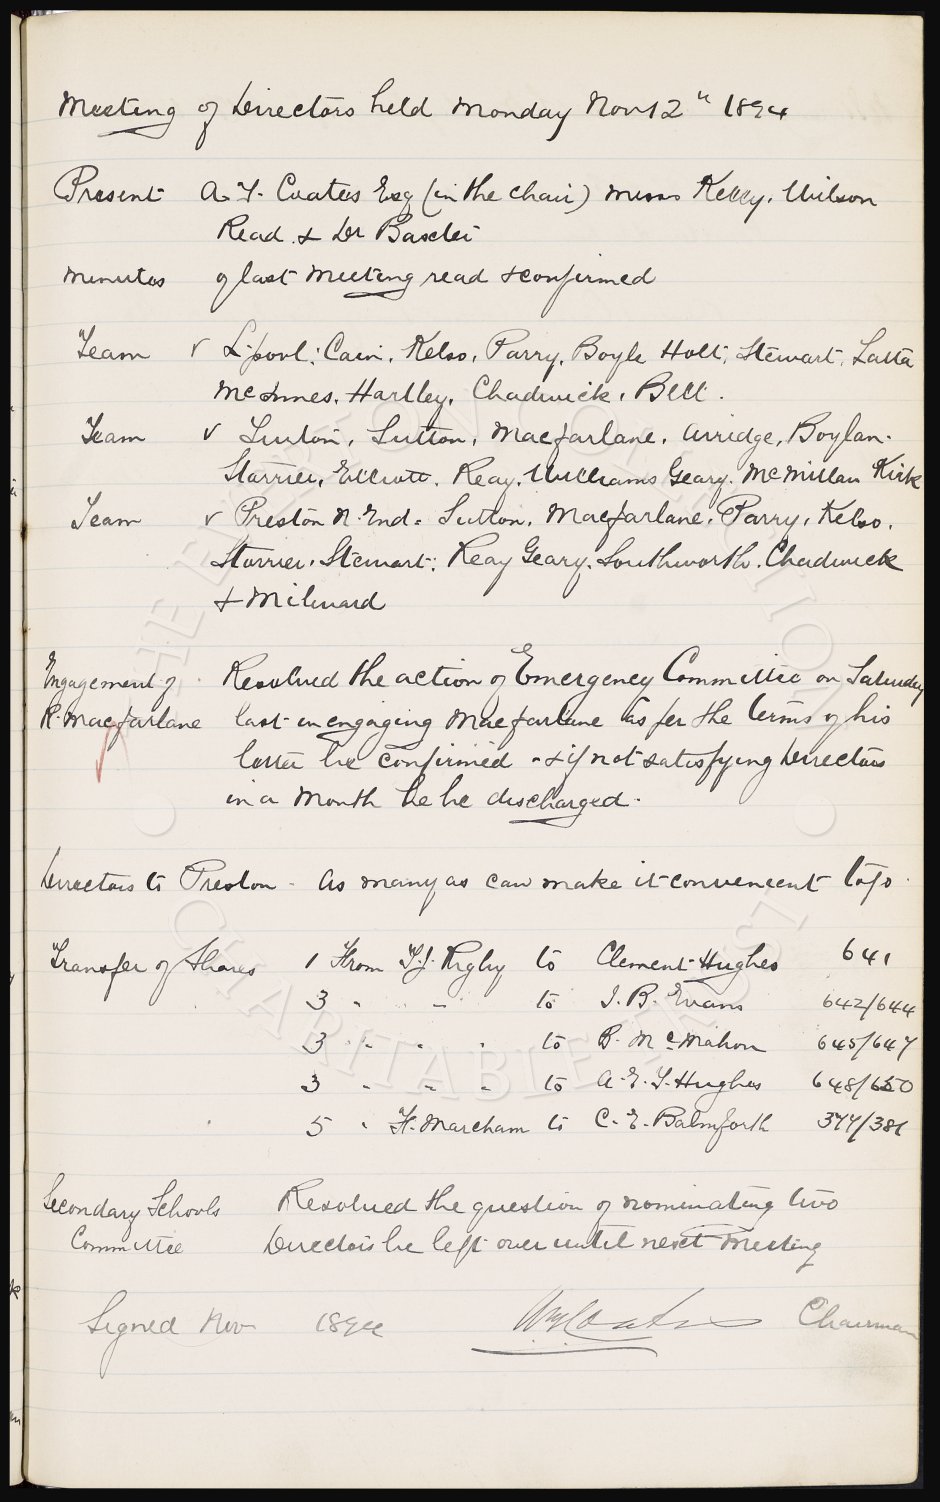 Meeting of Directors held Monday Nov 12th 1894
Present A.T. Coates Esq (in the chair) Messrs Kelly, Wilson
Read & Dr Baxter
Minutes of last Meeting read & confirmed
Team v L'pool: Cain, Kelso, Parry, Boyle Holt, Stewart, Latta
McInnes, Hartley, Chadwick, Bell.
Team v Luton, Sutton, Macfarlane, Arridge, Boylan.
Storrier, Elliott, Reay, Williams Geary, McMillan Kirk
Team v Preston N. End = Sutton, Macfarlane, Parry, Kelso,
Storrier, Stewart, Reay Geary, Southworth, Chadwick
& Milward
Engagement of R. Macfarlane Resolved the action of Emergency Committee on Saturday
last in engaging Macfarlane as per the terms of his
letter be confirmed - & if not satisfying Directors
in a month he be discharged.
Directors to Preston - As many as can make it convenient to go.
Transfer of Shares 1 From T.J. Rigby to Clement Hughes 641
3 " " " to J.B. Evans 642/644
3 " " " to B. McMahon 645/647
3 " " " to A.E.T. Hughes 648/650
5 " H. Marcham to C.E. Balmforth 377/381
Secondary Schools Resolved the question of nominating two
Committee Directors be left over until next Meeting
Signed Nov 1894 Chairman
THE EVERTON COLLECTION
CHARITABLE TRUST